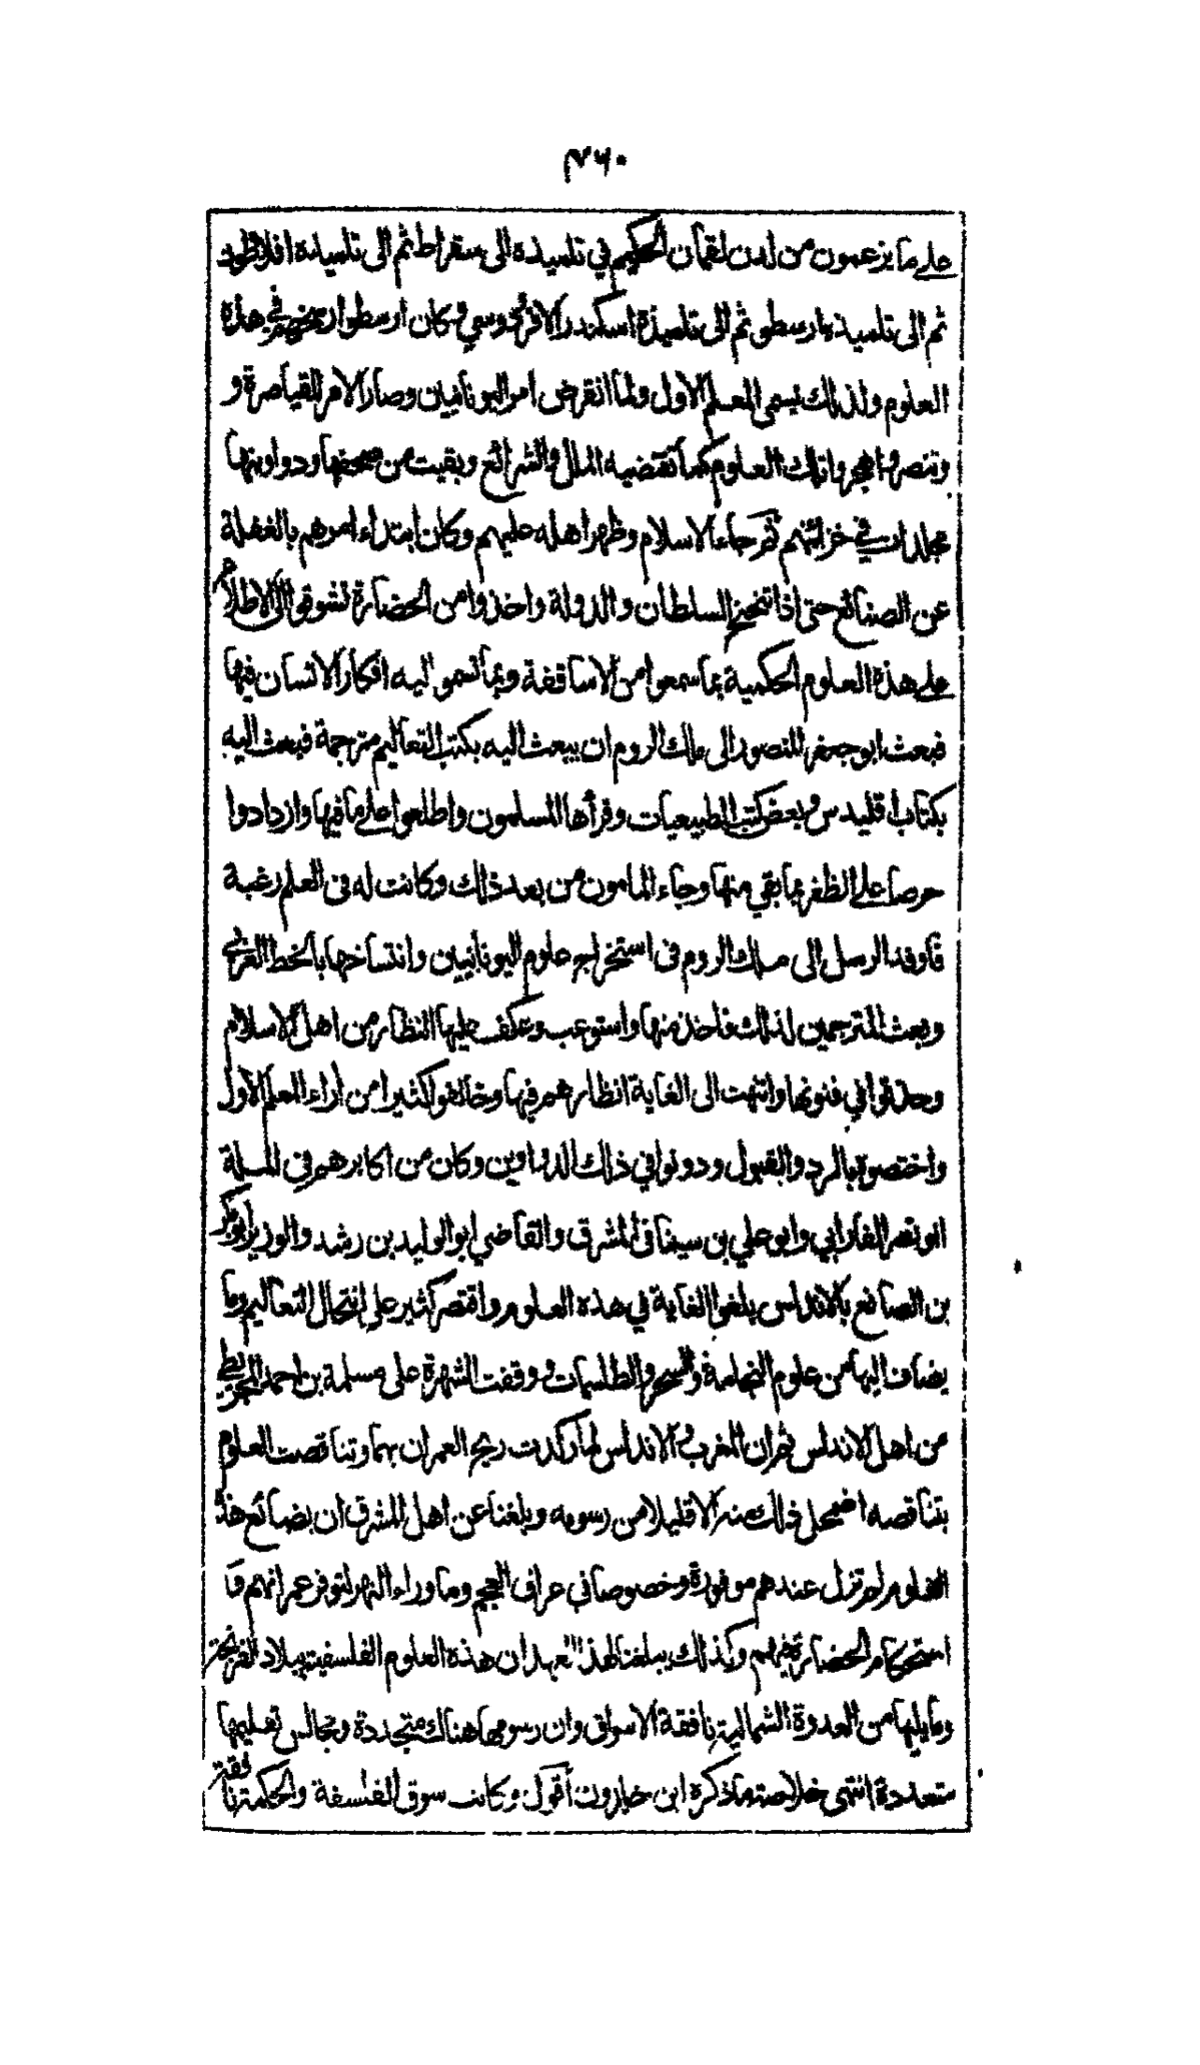 ٤٦٠
على ما يزعمون من لدن لقمان الحكيم في تلميذه الى سقراط ثم الى تلميذه افلاطون
ثم الى تلميذه ارسطو ثم الى تلميذه اسكندر الافرودوسي وكان ارسطو ارسخهم في هذه
العلوم ولذلك يسمى المعلم الاول ولما انقرض امر اليونانيين وصار الامر للقياصرة و
وتنصروا هجروا تلك العلوم كما تقتضيه الملل والشرائع وبقيت من صحفها ودواوينها
مجلدات في خزائنهم ثم جاء الاسلام وظهر اهله عليهم وكان ابتداء امرهم بالغفلة
عن الصنائع حتى اذا تبحبح السلطان والدولة واخذوا من الحضارة تشوقوا الى الاطلاع
على هذه العلوم الحكمية بما سمعوا من الاساقفة وبما تسمو اليه افكار الانسان فيها
فبعث ابو جعفر المنصور الى ملك الروم ان يبعث اليه بكتب التعاليم مترجمة فبعث اليه
بكتاب اقليدس وبعض كتب الطبيعيات وقرأها المسلمون واطلعوا على ما فيها وازدادوا
حرصا على الظفر بما بقي منها وجاء المامون من بعد ذلك وكانت له في العلم رغبة
فاوفد الرسل الى ملك الروم في استخراج علوم اليونانيين وانتساخها بالخط العربي
وبعث المترجمين لذلك فاخذ منها واستوعب وعكف عليها النظار من اهل الاسلام
وحذقوا في فنونها وانتهت الى الغاية انظارهم فيها وخالفوا كثيرا من اراء المعلم الاول
واختصوه بالرد والقبول ودونوا في ذلك الدواوين وكان من اكابرهم في الملة
ابو نصر الفارابي وابو علي بن سينا في المشرق والقاضي ابو الوليد بن رشد والوزير ابو بكر
بن الصائغ بالاندلس بلغوا الغاية في هذه العلوم واقتصر كثير على انتحال التعاليم وما
يضاف اليها من علوم النجامة والسحر والطلسمات ووقفت الشهرة على مسلمة بن احمد المجريطي
من اهل الاندلس ثم ان المغرب والاندلس لما ركدت ريح العمران بهما وتناقصت العلوم
بتناقصه اضمحل ذلك منه الا قليلا من رسومه ويبلغنا عن اهل المشرق ان بضائع هذه
العلوم لم تزل عندهم موفورة وخصوصا في عراق العجم وما وراء النهر لتوفر عمرانهم و
استحكام الحضارة فيهم وكذلك يبلغنا لهذا العهد ان هذه العلوم الفلسفية ببلاد الفرنجة
وما يليها من العدوة الشمالية نافقة الاسواق وان رسومها هناك متجددة ومجالس تعليمها
متعددة انتهى خلاصة ما ذكره ابن خلدون اقول وكانت سوق الفلسفة والحكمة نافقة